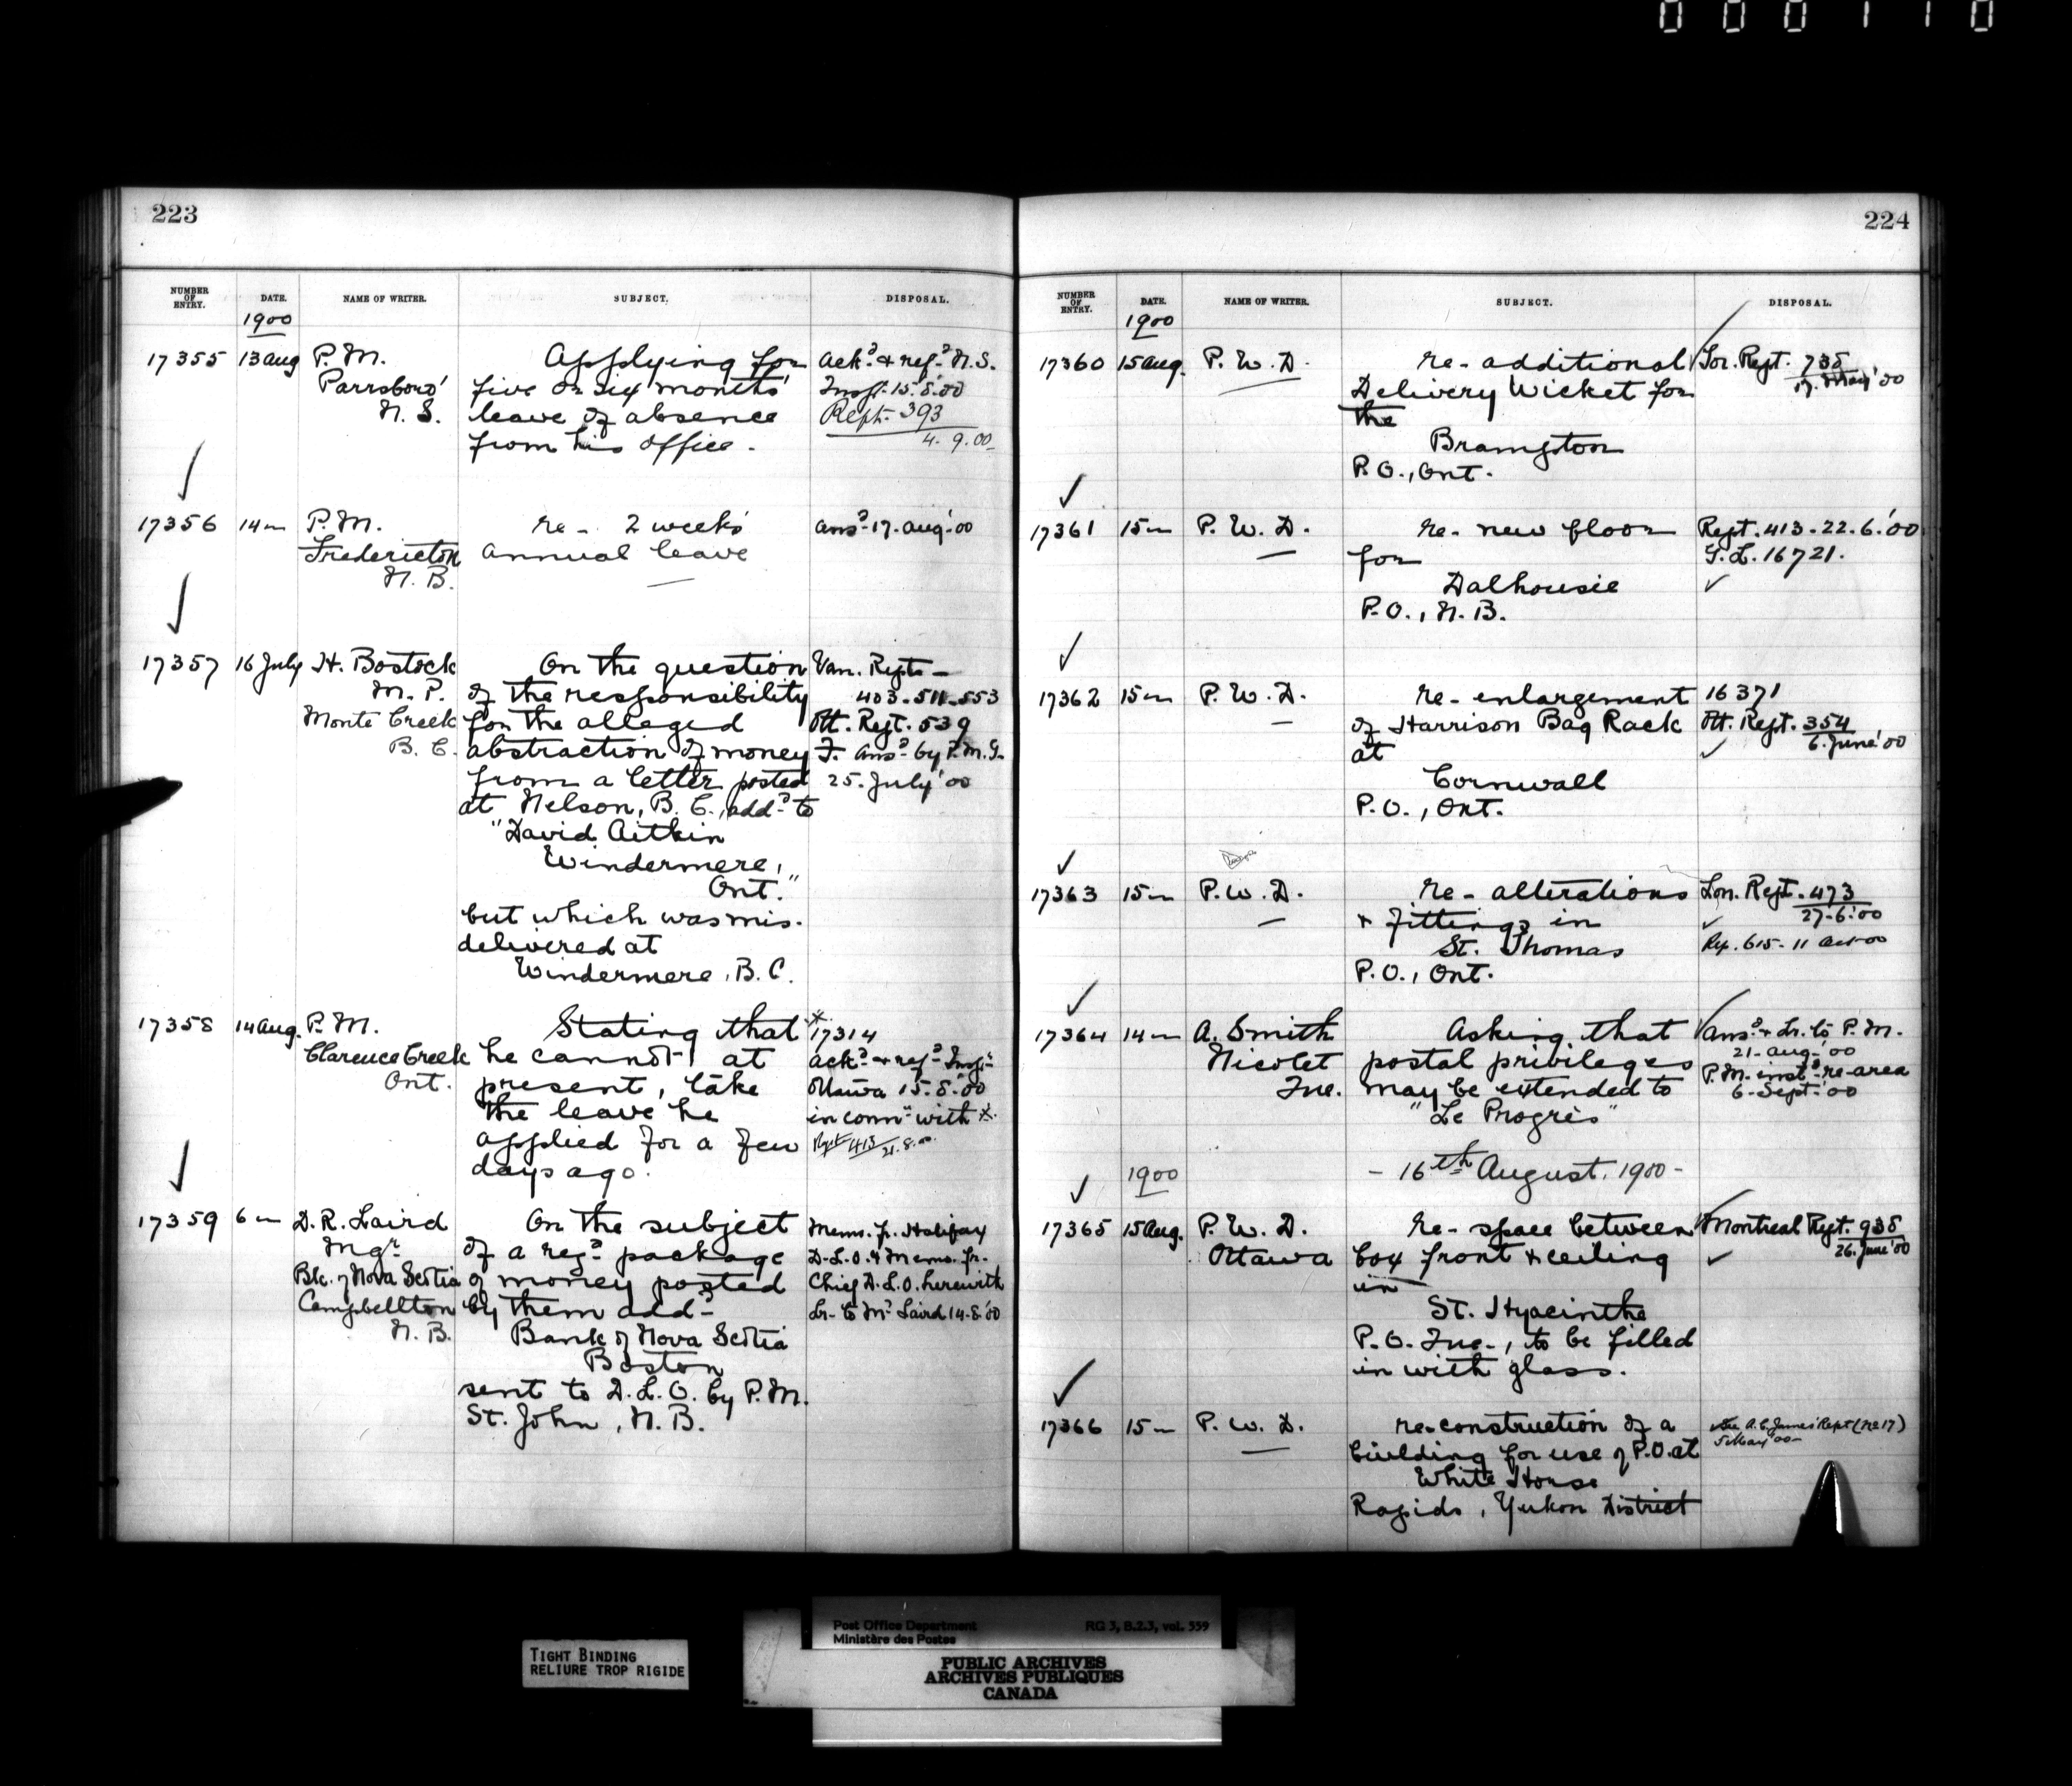 000110
223
NUMBER OF ENTRY. DATE. NAME OF WRITER. SUBJECT. DISPOSAL.
1900
17355 13 Aug P.M. Applying for Ackd & refd N.S.
Parrsboro' five or six months' Inspr 15.8.'00
N.S. leave of absence Rept. 393
from his office. 4.9.00
17356 14 " P.M. re- 2 weeks' Ansd 17. Aug '00
Fredericton annual leave
N.B.
17357 16 July H. Bostock On the question Van. Repts-
M.P. of the responsibility 403-511-553
Monte Creek for the alleged Ott. Rept. 539
B.C. abstraction of money F. Ansd by P.M.G.
from a letter posted 25. July '00
at Nelson, B.C., addd to
"David Aitkin
Windermere,
Ont."
but which was mis-
delivered at
Windermere, B.C.
17358 14 Aug. P.M. Stating that * 17314
Clarence Creek he cannot, at Ackd & refd Inspr
Ont. present, take Ottawa 15.8.'00
the leave he in conn with *
applied for a few Rept 413 21.8.00
days ago.
17359 6 " D.R. Laird On the subject Memo. fr. Halifax
Mgr of a regd package D.L.O. & Memo. fr.
Bk. of Nova Scotia of money posted Chief D.L.O. herewith
Campbellton by them addd Lr. to Mr Laird 14.8.'00
N.B. Bank of Nova Scotia
Boston
sent to D.L.O. by P.M.
St. John, N.B.
224
NUMBER OF ENTRY. DATE. NAME OF WRITER. SUBJECT. DISPOSAL.
1900
17360 15 Aug. P.W.D. re- additional Tor. Rept. 738
Delivery Wicket for 17. May '00
the
Brampton
P.O., Ont.
17361 15 " P.W.D. re- new floor Rept. 413-22.6.'00
for G.L. 16721.
Dalhousie
P.O., N.B.
17362 15 " P.W.D. re- enlargement 16371
of Harrison Bag Rack Ott. Rept. 354
at 6. June '00
Cornwall
P.O., Ont.
17363 15 " P.W.D. re- alterations Lon. Rept. 473
& fittings in 27-6.'00
St. Thomas Rep. 615- 11 Oct 00
P.O., Ont.
17364 14 " A. Smith Asking that Ansd & Lr. to P.M.
Nicolet postal privileges 21- Aug- '00
Que. may be extended to P.M. instd re- area
"Le Progrès" 6- Sept. '00
1900 - 16th August. 1900 -
17365 15 Aug. P.W.D. re- space between Montreal Rept. 938
Ottawa box front & ceiling 26. June '00
in
St. Hyacinthe
P.O. Que., to be filled
in with glass.
17366 15 " P.W.D. re- construction of a See A.C. James' Rept (re 17)
building for use of P.O. at 5 May 00-
White Horse
Rapids, Yukon District
TIGHT BINDING
RELIURE TROP RIGIDE
Post Office Department RG 3, B.2.3, vol. 559
Ministère des Postes
PUBLIC ARCHIVES
ARCHIVES PUBLIQUES
CANADA